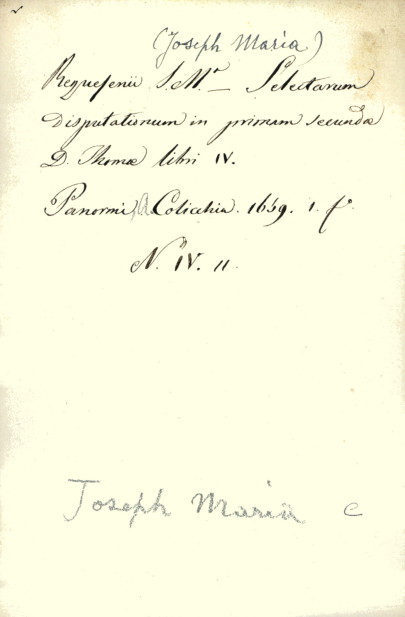 (Joseph Maria)
Requesenii J. Mª — Selectarum
Disputationum in primam secundæ
D. Thomæ libri IV.
Panormi, A Colicchia. 1659. 1. fº.
N. IV. 11.
Joseph Maria C